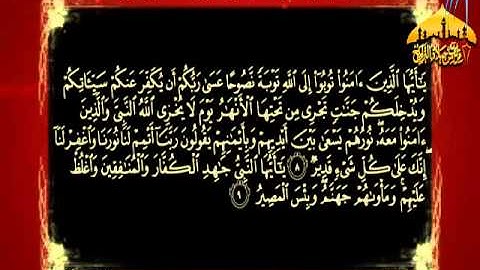 يَٰٓأَيُّهَا ٱلَّذِينَ ءَامَنُوا۟ تُوبُوٓا۟ إِلَى ٱللَّهِ تَوْبَةً نَّصُوحًا عَسَىٰ رَبُّكُمْ أَن يُكَفِّرَ عَنكُمْ سَيِّـَٔاتِكُمْ
وَيُدْخِلَكُمْ جَنَّٰتٍ تَجْرِى مِن تَحْتِهَا ٱلْأَنْهَٰرُ يَوْمَ لَا يُخْزِى ٱللَّهُ ٱلنَّبِىَّ وَٱلَّذِينَ
ءَامَنُوا۟ مَعَهُۥ نُورُهُمْ يَسْعَىٰ بَيْنَ أَيْدِيهِمْ وَبِأَيْمَٰنِهِمْ يَقُولُونَ رَبَّنَآ أَتْمِمْ لَنَا نُورَنَا وَٱغْفِرْ لَنَآ
إِنَّكَ عَلَىٰ كُلِّ شَىْءٍ قَدِيرٌ ٨ يَٰٓأَيُّهَا ٱلنَّبِىُّ جَٰهِدِ ٱلْكُفَّارَ وَٱلْمُنَٰفِقِينَ وَٱغْلُظْ
عَلَيْهِمْ وَمَأْوَىٰهُمْ جَهَنَّمُ وَبِئْسَ ٱلْمَصِيرُ ٩